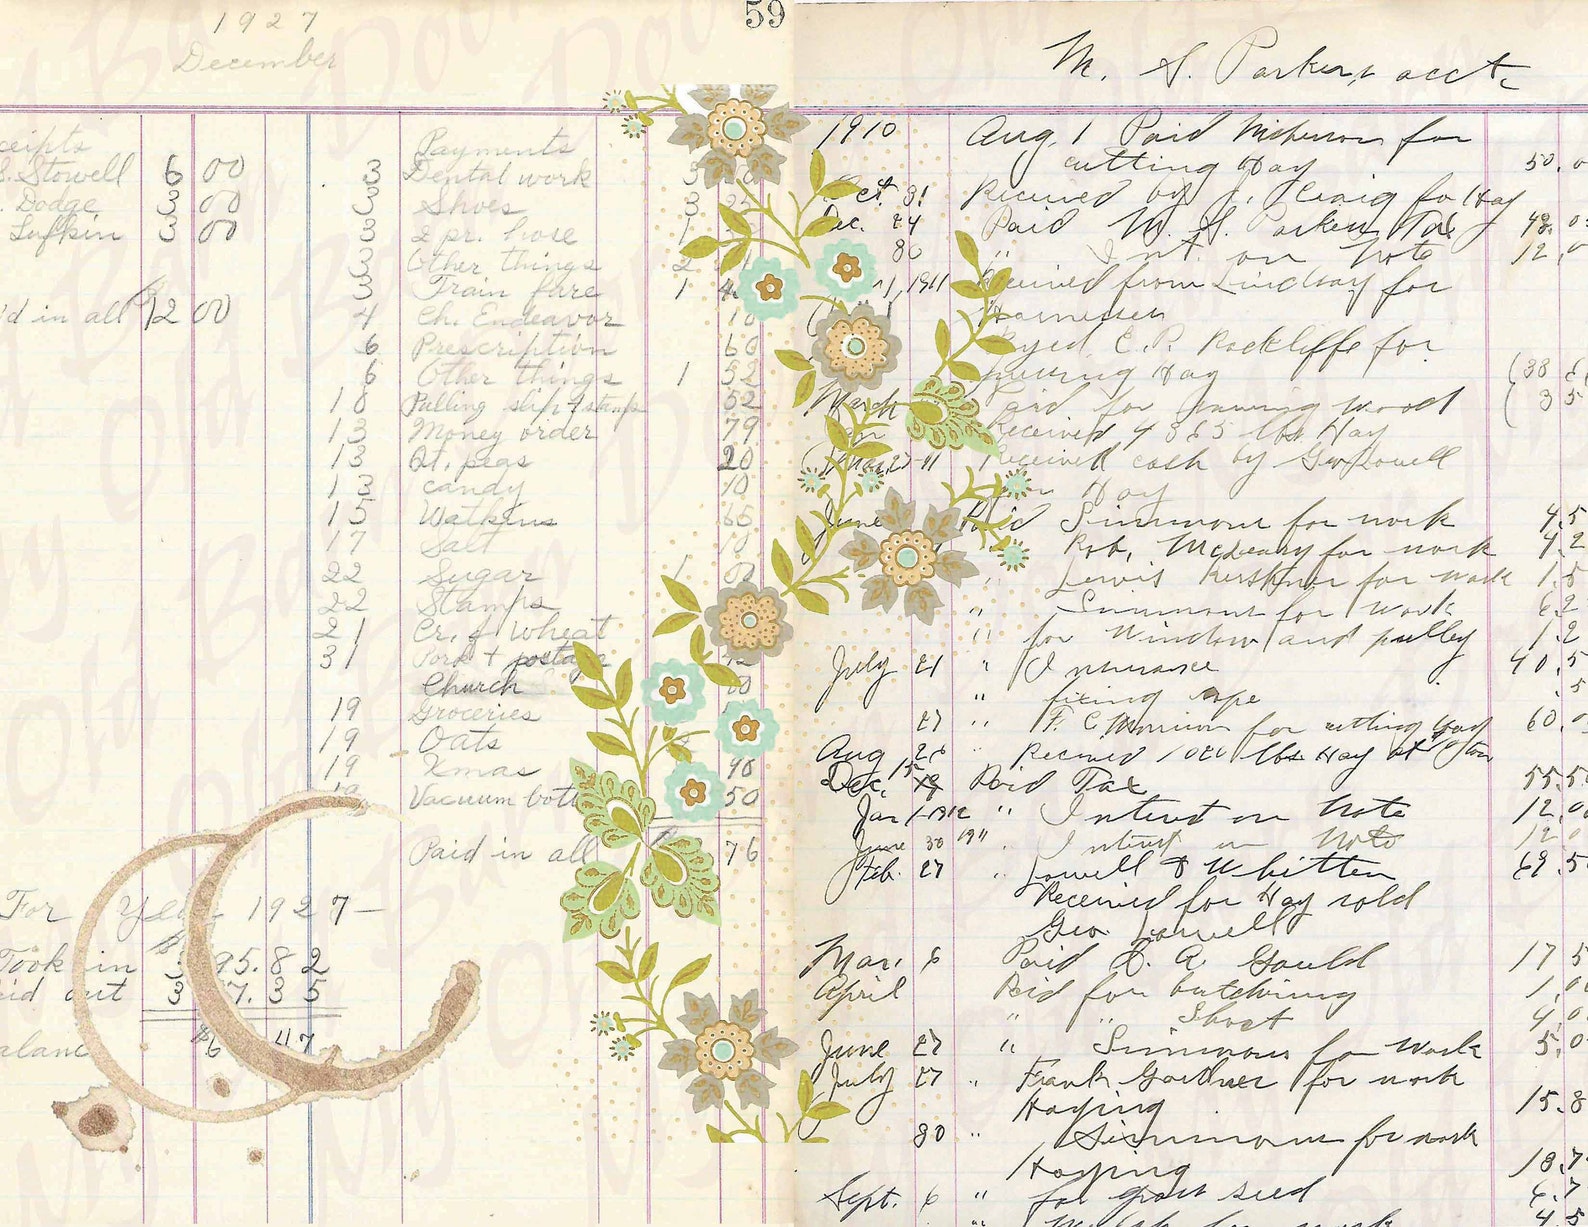 1927
59
December
ceipts
Payments
S. Stowell 6 00
3 Dental work 3
. Dodge 3 00
3 Shoes 3
Lufkin 3 00
3 2 pr. hose 1
3 Other things 2
3 Train fare 1
'd in all 12 00
4 Ch. Endeavor 10
6 Prescription 60
6 Other things 1 52
18 Pulling slip + stamps 52
13 Money order 79
13 Bt. peas 20
13 candy 10
15 Watkins 65
17 Salt 10
22 Sugar 1
22 Stamps
21 Cr. of Wheat
31 Pork + postage
Church
19 Groceries
19 Oats
19 Xmas 40
19 Vacuum bott 50
Paid in all 76
For Year 1927-
Took in 95.82
id out 3 7.35
alanc 47
M. S. Parkers acct.
1910 Aug. 1 Paid for
cutting Hay 50.0
Oct. 31 Received by J. Craig for Hay
Dec. 24 Paid M. S. Parkers Tax 48.0
30 " Int. on Note 12.0
1, 1911 eceived from Lindsay for
Harnesses
E. P. Rockliffe for
Hay (38
March aid for sawing wood ( 3 5
Received lbs Hay
Mar. 27-11 Received cash by Geo Lowell
Hay
June Paid Simmons for work 4.5
Rob. McCleary for work 4.2
" Lewis for work 1.5
" Simmons for work 6.2
" for Window and pulley 1.2
July 21 " Insurance 40.5
" fixing rope .5
27 " F. C. for cutting Hay 60.0
Aug 26 " Received lbs Hay at
Dec. 15 19 Paid Tax 55.5
Jan 1-1912 " Interest on Note 12.0
June 30 1911 " Interest on Note 12.0
Feb. 27 " Lowell & Whitten 69.5
Received for Hay sold
Geo. Lowell
Mar. 6 Paid A. Gould 17 5
April Paid for butchering 1.0
" " Shoat 4.0
June 27 " Simmons for work 5.0
July 27 " Frank Gardner for work
Haying 15.8
30 " Simmons for work
Haying 18.7
Sept. 6 " for grass seed 6.7
" for work 4 5